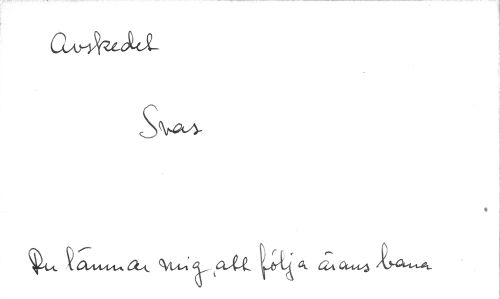 Avskedet
Svas
Du lämnar mig, att följa ärans bana